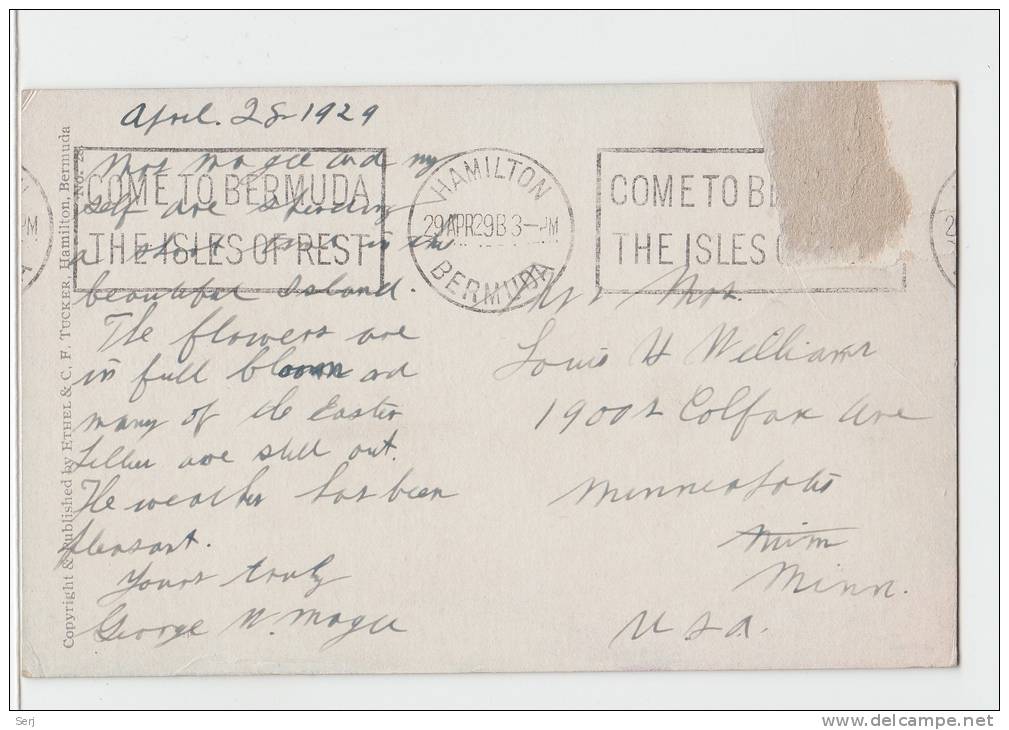 April. 28-1929
Mrs Magee and my
self are spending
a short time in the
beautiful Island.
The flowers are
in full bloom and
many of the Easter
Lillies are still out.
The weather has been
pleasant.
Yours truly
George N. Magee
COME TO BERMUDA
THE ISLES OF REST
HAMILTON
29 APR 29 B 3 - PM
BERMUDA
COME TO BE
THE ISLES O
Mr & Mrs.
Louis H Williams
1900 Colfax Ave
Minneapolis
Minn.
U.S.A.
Copyright & Published by ETHEL & C. F. TUCKER, Hamilton, Bermuda
No.
Serj
www.delcampe.net